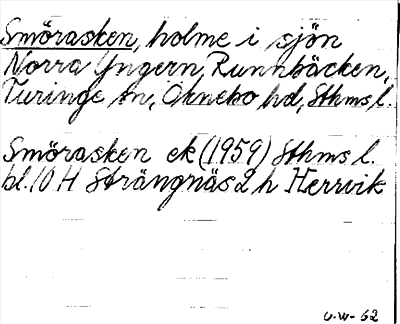 Smörasken, holme i sjön
Norra Yngern, Runnbäcken,
Turinge sn, Öknebo hd, Sthms l.
Smörasken ek (1959) Sthms l.
bl. 10 H Strängnäs 2 h Herrvik
U.W-62